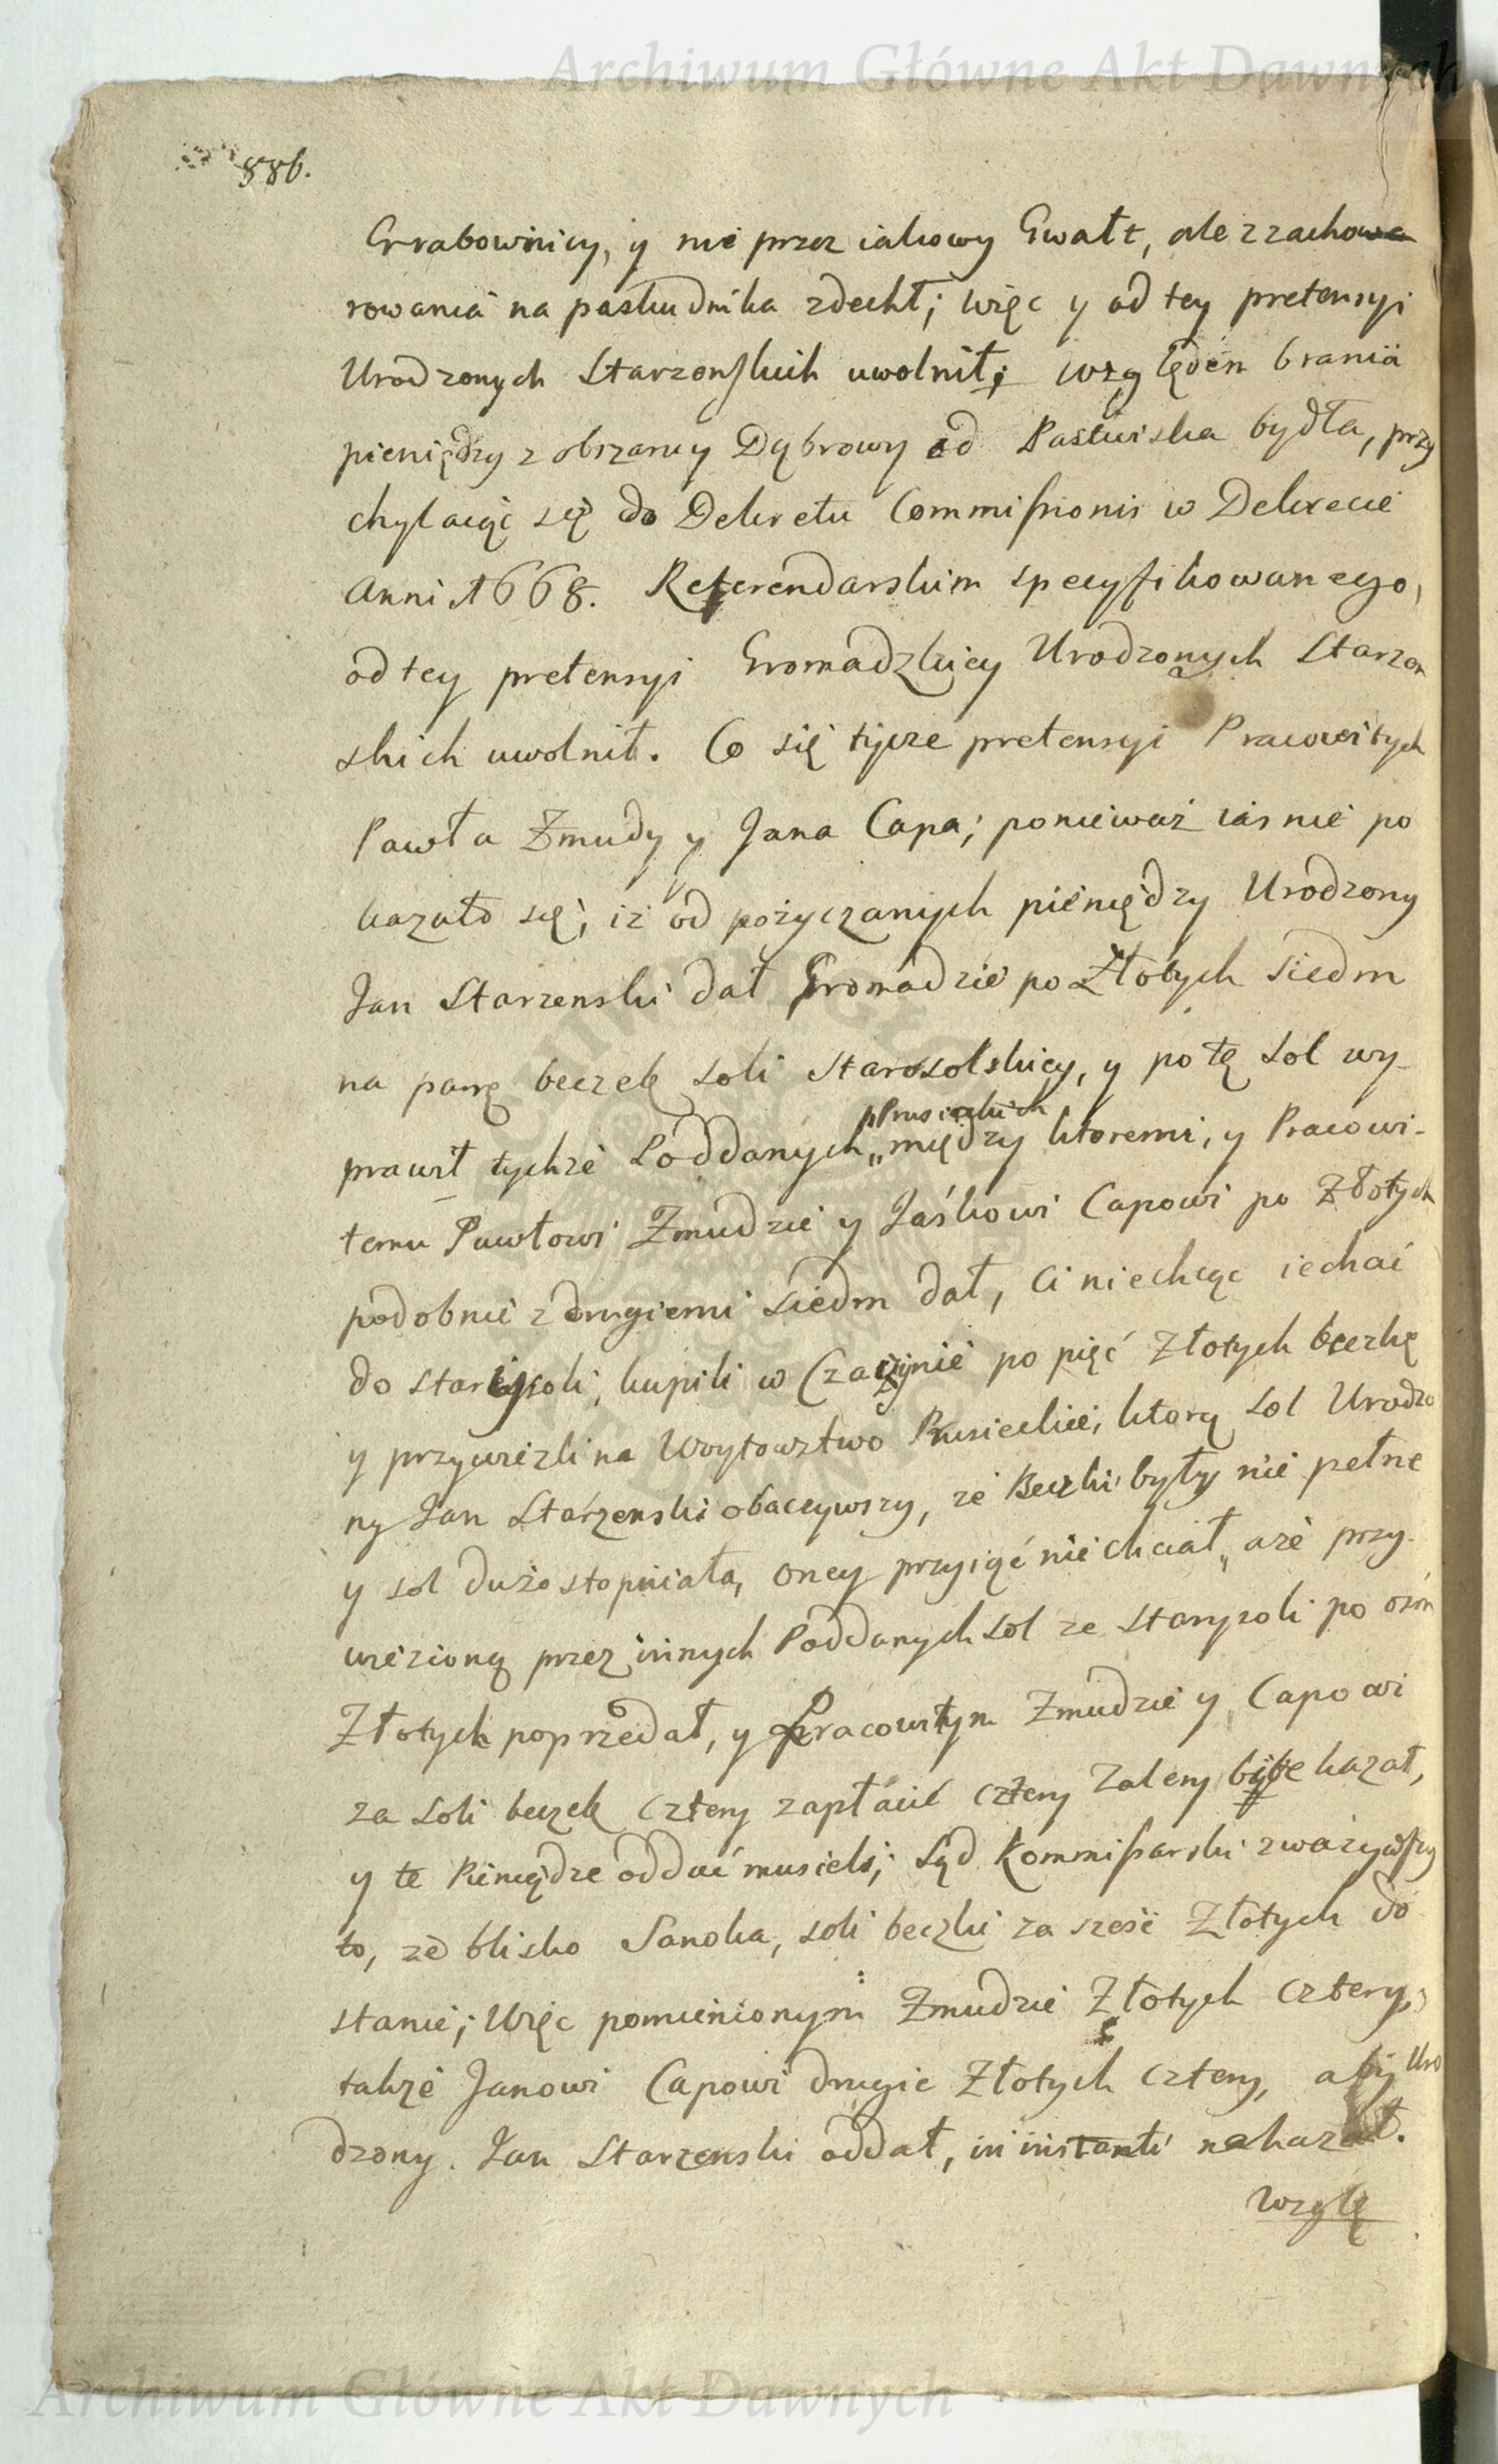 Archiwum Główne Akt Dawnych
886.
Grabownicy, y nie przez iakowy Gwałt, ale z zacho
rowania na paskudnika zdechł; więc y od tey pretensyi
Urodzonych Starzenskich uwolnił; względem brania
pieniędzy z obszaruy Dąbrowy od Pastwiska bydła, przy
chylaiąc się do Dekretu Commissionis w Dekrecie
Anni 1668. Referendarskim specyfikowanego,
od tey pretensyi Gromadzkiey Urodzonych Starzen
skich uwolnił. Co się tycze pretensyi Pracowitych
Pawła Zmudy y Jana Capa; ponieważ iasnie po
kazało się, iż od pożyczanych pieniędzy Urodzony
Jan Starzenski dał Gromadzie po Złotych siedm
na parę beczek soli Starosolskiey, y po tę sol wy-
prawił tychże Poddanych „ Prusieckich między ktoremi, y Pracowi-
temu Pawłowi Zmudzie y Jaśkowi Capowi po Złotych
podobnie z drugiemi siedm dał, Ci niechcąc iechać
do Stareysoli, kupili w Czaszynie po pięć Złotych beczkę
y przywiezli na Woytowstwo Prusieckie, ktorą sol Urodzo
ny Jan Starzenski obaczywszy, że Beczki były nie pełne
y sol dużo stopniała, oney przyiąć nie chciał, aże przy-
wiezioną przez innych Poddanych sol ze Staryzoli po osm
Złotych poprzedał, y Pracowitym Zmudzie y Capowi
za soli beczek cztery zapłacić cztery Talery bite kazał,
y te Pieniądze oddać musieli; Sąd Kommissarski zważywszy
to, że blisko Sanoka, soli beczki za sześć Złotych do
stanie; Więc pomienionym Zmudzie Złotych cztery,
także Janowi Capowi drugie Złotych cztery, aby Uro
dzony Jan Starzenski oddał, in instanti nakazał.
Wzglę
Archiwum Główne Akt Dawnych